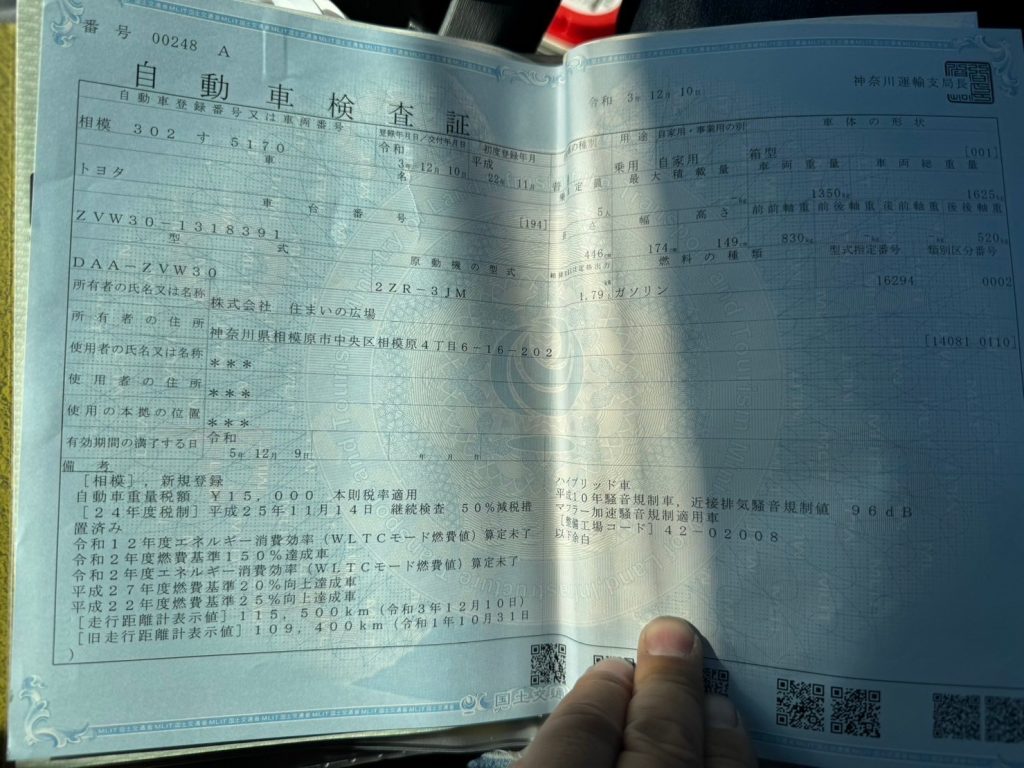 番号 00248 A
自動車検査証
令和 3年 12月 10日
神奈川運輸支局長
自動車登録番号又は車両番号
登録年月日/交付年月日
初度登録年月
の種別
用途
自家用・事業用の別
車体の形状
相模 302 す 5170
令和 3年 12月 10日
平成 22年 11月
普
乗用
自家用
箱型
[001]
車
名
定員
最大積載量
車両重量
車両総重量
トヨタ
[194]
5人
kg
1350kg
1625kg
車台番号
さ
幅
高さ
前前軸重
前後軸重
後前軸重
後後軸重
ZVW30-1318391
446cm
174cm
149cm
830kg
-kg
-kg
520kg
型式
原動機の型式
定格出力
燃料の種類
型式指定番号
類別区分番号
DAA-ZVW30
2ZR-3JM
kW
1.79L
ガソリン
16294
0002
所有者の氏名又は名称
株式会社 住まいの広場
所有者の住所
神奈川県相模原市中央区相模原4丁目6-16-202
[14081 0110]
使用者の氏名又は名称
***
使用者の住所
***
使用の本拠の位置
***
有効期間の満了する日
令和 5年 12月 9日
年 月 日
備考
[相模],新規登録
自動車重量税額 ¥15,000 本則税率適用
[24年度税制]平成25年11月14日 継続検査 50%減税措
置済み
令和12年度エネルギー消費効率(WLTCモード燃費値)算定未了
令和2年度燃費基準150%達成車
令和2年度エネルギー消費効率(WLTCモード燃費値)算定未了
平成27年度燃費基準20%向上達成車
平成22年度燃費基準25%向上達成車
[走行距離計表示値]115,500km(令和3年12月10日)
[旧走行距離計表示値]109,400km(令和1年10月31日
)
ハイブリッド車
平成10年騒音規制車,近接排気騒音規制値 96dB
マフラー加速騒音規制適用車
[整備工場コード]42-02008
以下余白
国土交